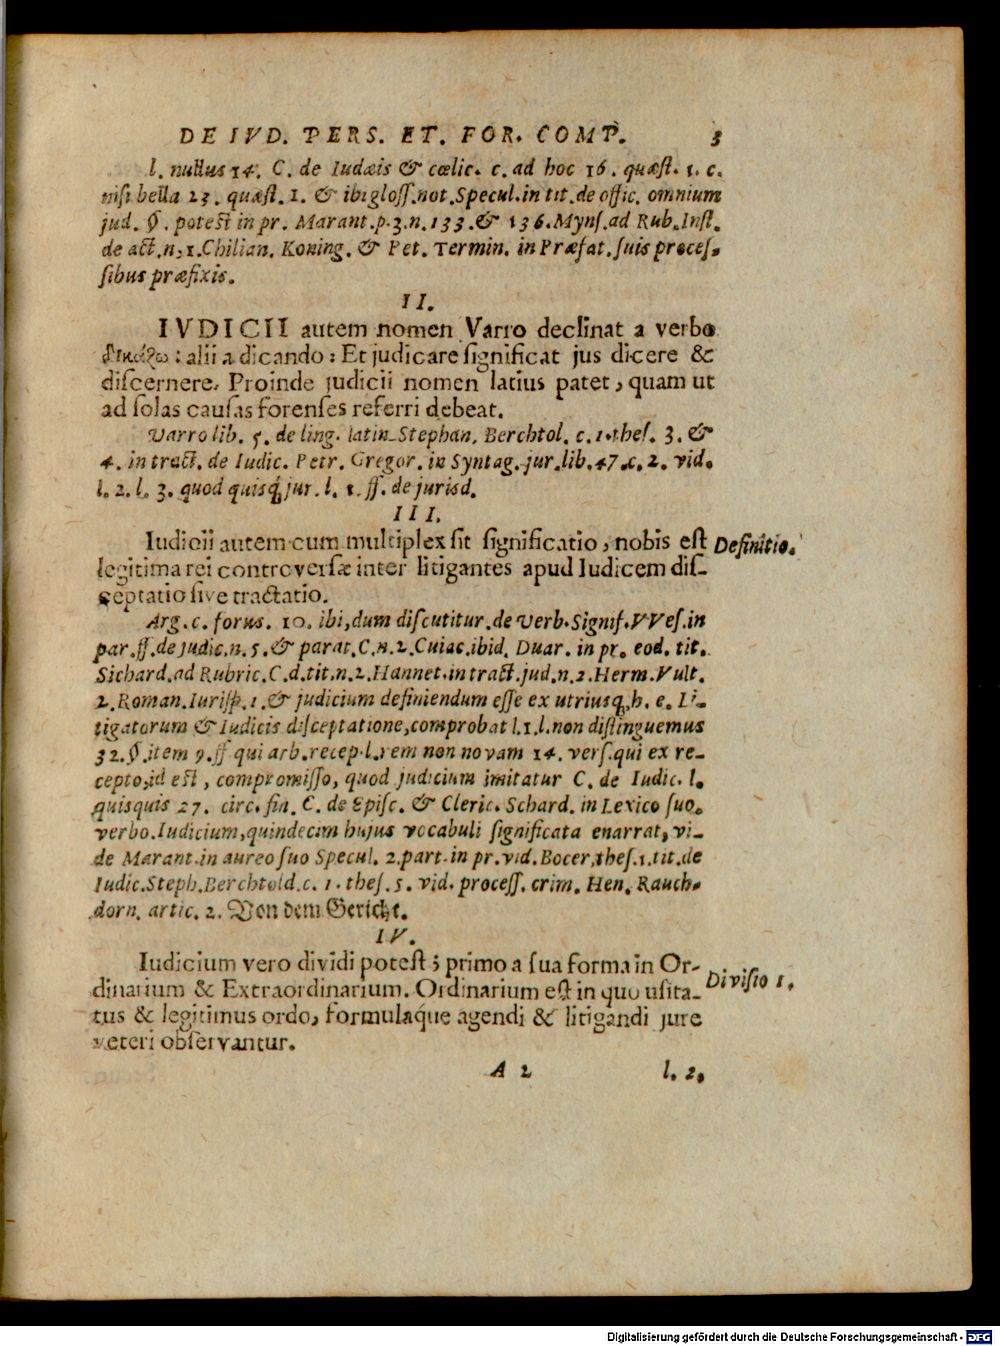 DE IVD. PERS. ET. FOR. COMP. 3
l. nullus 14. C. de Iudæis & cœlic. c. ad hoc 16. quæst. 1. c.
nisi bella 23. quæst. 1. & ibi gloss. not. Specul. in tit. de offic. omnium
jud. §. potest in pr. Marant. p. 3. n. 133. & 136. Myns. ad Rub. Inst.
de act. n. 1. Chilian. Koning. & Pet. Termin. in Præfat. suis proces-
sibus præfixis.
II.
IVDICII autem nomen Varro declinat a verbo
δικάζω: alii a dicando: Et judicare significat jus dicere &
discernere. Proinde judicii nomen latius patet, quam ut
ad solas causas forenses referri debeat.
Varro lib. 5. de ling. latin. Stephan. Berchtol. c. 1. thes. 3. &
4. in tract. de Iudic. Petr. Gregor. in Syntag. jur. lib. 47. c. 2. vid.
l. 2. l. 3. quod quisq; jur. l. 1. ff. de jurisd.
III.
Iudicii autem cum multiplex sit significatio, nobis est Definitio.
legitima rei controversæ inter litigantes apud Iudicem dis-
ceptatio sive tractatio.
Arg. c. forus. 10. ibi, dum discutitur. de Verb. Signif. VVes. in
par. ff. de judic. n. 5. & parat. C. n. 2. Cuiac. ibid. Duar. in pr. eod. tit.
Sichard. ad Rubric. C. d. tit. n. 2. Hannet. in tract. jud. n. 2. Herm. Vult.
2. Roman. Iurisp. 1. & judicium definiendum esse ex utriusq; h. e. Li-
tigatorum & Iudicis disceptatione, comprobat l. 1. l. non distinguemus
32. §. item 9. ff qui arb. recep. l. rem non novam 14. vers. qui ex re-
cepto, id est, compromisso, quod judicium imitatur C. de Iudic. l.
quisquis 27. circ. fin. C. de Episc. & Cleric. Schard. in Lexico suo.
verbo. Iudicium, quindecim hujus vocabuli significata enarrat, vi-
de Marant. in aureo suo Specul. 2. part. in pr. vid. Bocer, thes. 1. tit. de
Iudic. Steph. Berchtold. c. 1. thes. 5. vid. process. crim. Hen. Rauch-
dorn. artic. 2. Von dem Gericht.
IV.
Iudicium vero dividi potest; primo a sua forma in Or-
dinarium & Extraordinarium. Ordinarium est in quo usita- Divisio 1.
tus & legitimus ordo, formulaque agendi & litigandi jure
veteri observantur.
A 2 l. 2.
Digitalisierung gefördert durch die Deutsche Forschungsgemeinschaft - DFG